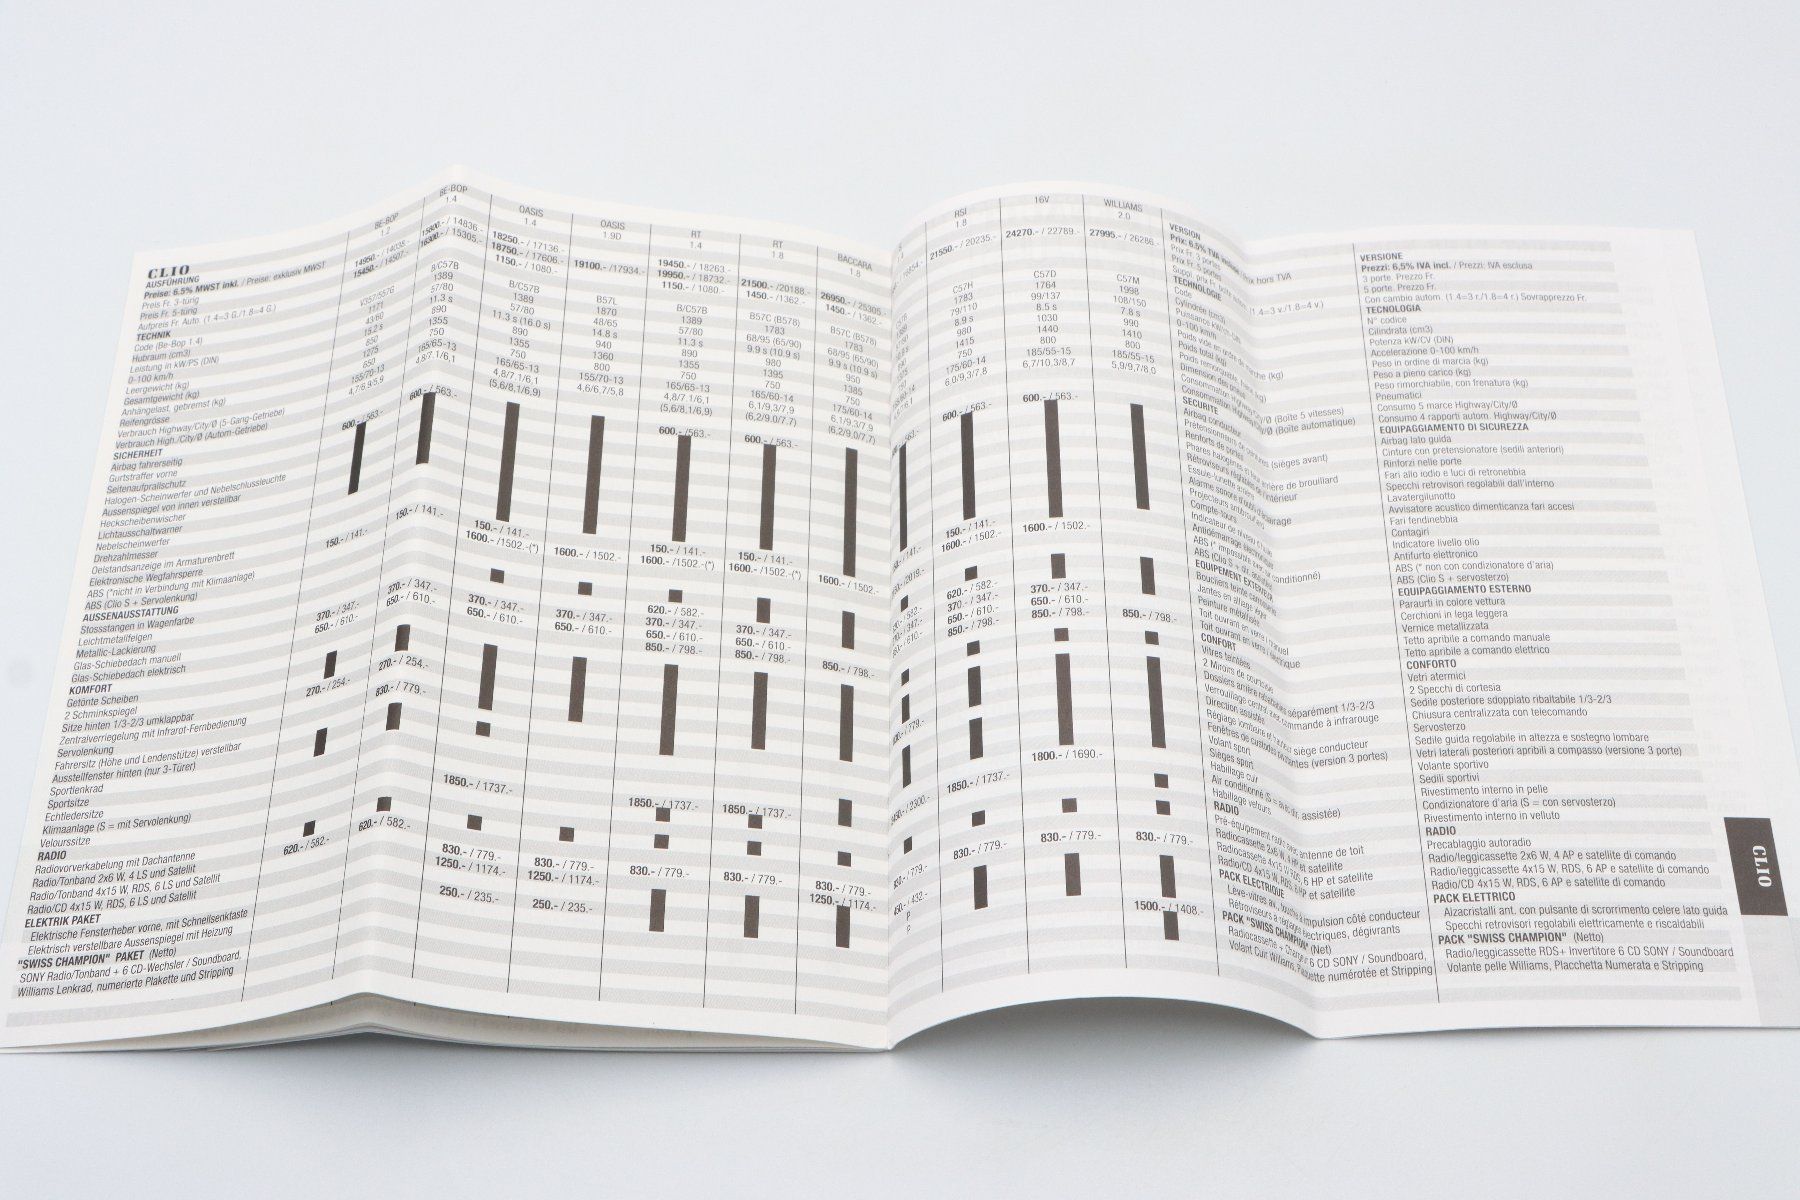 CLIO
AUSFÜHRUNG
Preise: 6.5% MWST inkl. / Preise: exklusiv MWST
Preis Fr. 3-türig
Preis Fr. 5-türig
Aufpreis Fr. Auto. (1.4=3 G./1.8=4 G.)
TECHNIK
Code (Be-Bop 1.4)
Hubraum (cm3)
Leistung in kW/PS (DIN)
0-100 km/h
Leergewicht (kg)
Gesamtgewicht (kg)
Anhängelast, gebremst (kg)
Reifengrösse
Verbrauch Highway/City/Ø (5-Gang-Getriebe)
Verbrauch High./City/Ø (Autom-Getriebe)
SICHERHEIT
Airbag fahrerseitig
Gurtstraffer vorne
Seitenaufprallschutz
Halogen-Scheinwerfer und Nebelschlussleuchte
Aussenspiegel von innen verstellbar
Heckscheibenwischer
Lichtausschaltwarner
Nebelscheinwerfer
Drehzahlmesser
Oelstandsanzeige im Armaturenbrett
Elektronische Wegfahrsperre
ABS (*nicht in Verbindung mit Klimaanlage)
ABS (Clio S + Servolenkung)
AUSSENAUSSTATTUNG
Stossstangen in Wagenfarbe
Leichtmetallfelgen
Metallic-Lackierung
Glas-Schiebedach manuell
Glas-Schiebedach elektrisch
KOMFORT
Getönte Scheiben
2 Schminkspiegel
Sitze hinten 1/3-2/3 umklappbar
Zentralverriegelung mit Infrarot-Fernbedienung
Servolenkung
Fahrersitz (Höhe und Lendenstütze) verstellbar
Ausstellfenster hinten (nur 3-Türer)
Sportlenkrad
Sportsitze
Echtledersitze
Klimaanlage (S = mit Servolenkung)
Velourssitze
RADIO
Radiovorverkabelung mit Dachantenne
Radio/Tonband 2x6 W, 4 LS und Satellit
Radio/Tonband 4x15 W, RDS, 6 LS und Satellit
Radio/CD 4x15 W, RDS, 6 LS und Satellit
ELEKTRIK PAKET
Elektrische Fensterheber vorne, mit Schnellsenktaste
Elektrisch verstellbare Aussenspiegel mit Heizung
"SWISS CHAMPION" PAKET (Netto)
SONY Radio/Tonband + 6 CD-Wechsler / Soundboard,
Williams Lenkrad, numerierte Plakette und Stripping
BE-BOP
1.2
14950.- / 14038.-
15450.- / 14507.-
V357/557G
1171
43/60
15.2 s
850
1275
650
155/70-13
4,7/6,9/5,9
600.- / 563.-
150.- / 141.-
370.- / 347.-
650.- / 610.-
270.- / 254.-
620.- / 582.-
BE-BOP
1.4
15800.- / 14836.-
16300.- / 15305.-
B/C57B
1389
57/80
11.3 s
890
1355
750
165/65-13
4,8/7,1/6,1
600.- / 563.-
150.- / 141.-
370.- / 347.-
650.- / 610.-
270.- / 254.-
830.- / 779.-
620.- / 582.-
OASIS
1.4
18250.- / 17136.-
18750.- / 17606.-
1150.- / 1080.-
B/C57B
1389
57/80
11.3 s (16.0 s)
890
1355
750
165/65-13
4,8/7,1/6,1
(5,6/8,1/6,9)
150.- / 141.-
1600.- /1502.-(*)
370.- / 347.-
650.- / 610.-
1850.- / 1737.-
830.- / 779.-
1250.- / 1174.-
250.- / 235.-
OASIS
1.9D
19100.- /17934.-
B57L
1870
48/65
14.8 s
940
1360
800
155/70-13
4,6/6,7/5,8
1600.- / 1502.-
370.- / 347.-
650.- / 610.-
830.- / 779.-
1250.- / 1174.-
250.- / 235.-
RT
1.4
19450.- / 18263.-
19950.- / 18732.-
1150.- / 1080.-
B/C57B
1389
57/80
11.3 s
890
1355
750
165/65-13
4,8/7,1/6,1
(5,6/8,1/6,9)
600.- /563.-
150.- / 141.-
1600.- /1502.-(*)
620.- / 582.-
370.- / 347.-
650.- / 610.-
850.- / 798.-
1850.- / 1737.-
830.- / 779.-
RT
1.8
21500.- /20188.-
1450.- /1362.-
B57C (B578)
1783
68/95 (65/90)
9.9 s (10.9 s)
980
1395
750
165/60-14
6,1/9,3/7,9
(6,2/9.0/7.7)
600.- / 563.-
150.- / 141.-
1600.- /1502.-(*)
370.- / 347.-
650.- / 610.-
850.- / 798.-
1850.- / 1737.-
830.- / 779.-
BACCARA
1.8
26950.- / 25305.-
1450.- / 1362.-
B57C (B578)
1783
68/95 (65/90)
9.9 s (10.9 s)
950
1385
750
175/60-14
6,1/9,3/7,9
(6,2/9.0/7.7)
1600.- / 1502.-
850.- / 798.-
830.- / 779.-
1250.- / 1174.-
RSI
1.8
21550.- / 20235.-
C57H
1783
79/110
8.9 s
980
1415
750
175/60-14
6,0/9,3/7,8
600.- / 563.-
150.- / 141.-
1600.- / 1502.-
620.- / 582.-
370.- / 347.-
650.- / 610.-
850.- / 798.-
1850.- / 1737.-
830.- / 779.-
16V
24270.- / 22789.-
C57D
1764
99/137
8.5 s
1030
1440
800
185/55-15
6,7/10,3/8,7
600.- / 563.-
1600.- / 1502.-
370.- / 347.-
650.- / 610.-
850.- / 798.-
1800.- / 1690.-
830.- / 779.-
WILLIAMS
2.0
27995.- / 26286.-
C57M
1998
108/150
7.8 s
990
1410
800
185/55-15
5,9/9,7/8,0
850.- / 798.-
830.- / 779.-
1500.- / 1408.-
VERSION
Prix: 6.5% TVA incluse / Prix hors TVA
Prix Fr. 3 portes
Prix Fr. 5 portes
TECHNOLOGIE
Code
Cylindrée (cm3)
0-100 km/h
SECURITE
Airbag conducteur
Renforts de portes
Essuie-lunette arrière
Compte-tours
EQUIPEMENT EXTERIEUR
CONFORT
Vitres teintées
2 Miroirs de courtoisie
Direction assistée
Volant sport
Sièges sport
Habillage cuir
Habillage velours
RADIO
PACK ELECTRIQUE
PACK "SWISS CHAMPION" (Net)
VERSIONE
Prezzi: 6,5% IVA incl. / Prezzi: IVA esclusa
3 porte. Prezzo Fr.
5 porte. Prezzo Fr.
Con cambio autom. (1.4=3 r./1.8=4 r.) Sovrapprezzo Fr.
TECNOLOGIA
N° codice
Cilindrata (cm3)
Potenza kW/CV (DIN)
Accelerazione 0-100 km/h
Peso in ordine di marcia (kg)
Peso a pieno carico (kg)
Peso rimorchiabile, con frenatura (kg)
Pneumatici
Consumo 5 marce Highway/City/Ø
Consumo 4 rapporti autom. Highway/City/Ø
EQUIPAGGIAMENTO DI SICUREZZA
Airbag lato guida
Cinture con pretensionatore (sedili anteriori)
Rinforzi nelle porte
Fari allo iodio e luci di retronebbia
Specchi retrovisori regolabili dall'interno
Lavatergilunotto
Avvisatore acustico dimenticanza fari accesi
Fari fendinebbia
Contagiri
Indicatore livello olio
Antifurto elettronico
ABS (* non con condizionatore d'aria)
ABS (Clio S + servosterzo)
EQUIPAGGIAMENTO ESTERNO
Paraurti in colore vettura
Cerchioni in lega leggera
Vernice metallizzata
Tetto apribile a comando manuale
Tetto apribile a comando elettrico
CONFORTO
Vetri atermici
2 Specchi di cortesia
Sedile posteriore sdoppiato ribaltabile 1/3-2/3
Chiusura centralizzata con telecomando
Servosterzo
Sedile guida regolabile in altezza e sostegno lombare
Vetri laterali posteriori apribili a compasso (versione 3 porte)
Volante sportivo
Sedili sportivi
Rivestimento interno in pelle
Condizionatore d'aria (S = con servosterzo)
Rivestimento interno in velluto
RADIO
Precablaggio autoradio
Radio/leggicassette 2x6 W, 4 AP e satellite di comando
Radio/leggicassette 4x15 W, RDS, 6 AP e satellite di comando
Radio/CD 4x15 W, RDS, 6 AP e satellite di comando
PACK ELETTRICO
Alzacristalli ant. con pulsante di scrorrimento celere lato guida
Specchi retrovisori regolabili elettricamente e riscaldabili
PACK "SWISS CHAMPION" (Netto)
Radio/leggicassette RDS+ Invertitore 6 CD SONY / Soundboard
Volante pelle Williams, Placchetta Numerata e Stripping
CLIO